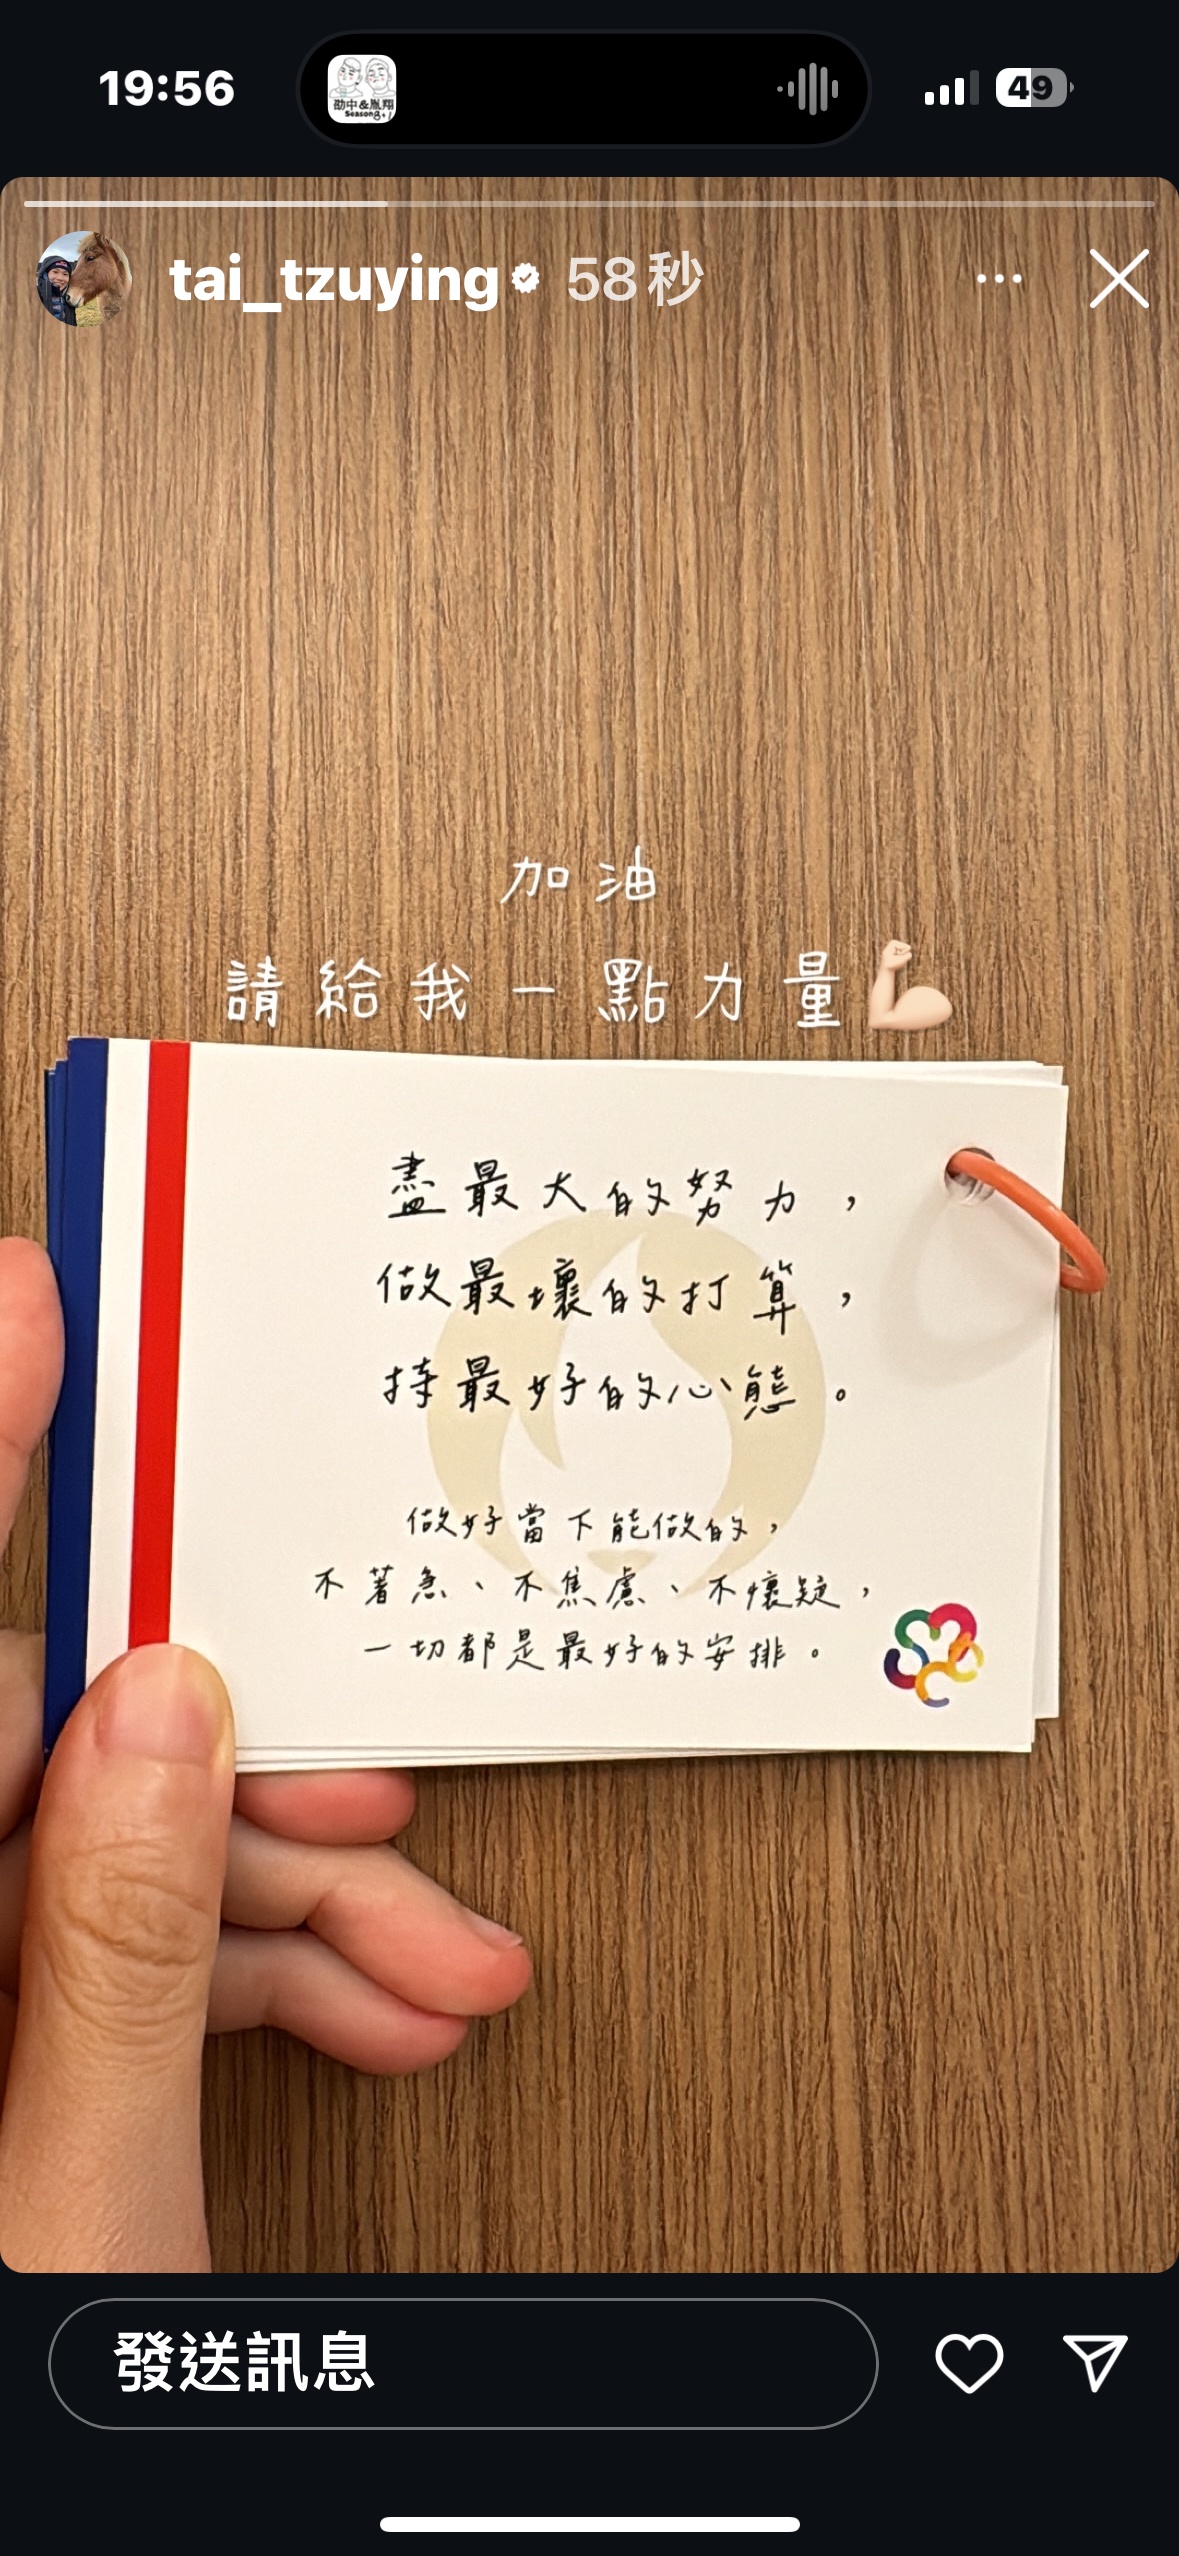 19:56
劭中&胤翔
Season8+1
49
tai_tzuying 58秒
加油
請給我一點力量
盡最大的努力，
做最壞的打算，
持最好的心態。
做好當下能做的，
不著急、不焦慮、不懷疑，
一切都是最好的安排。
發送訊息